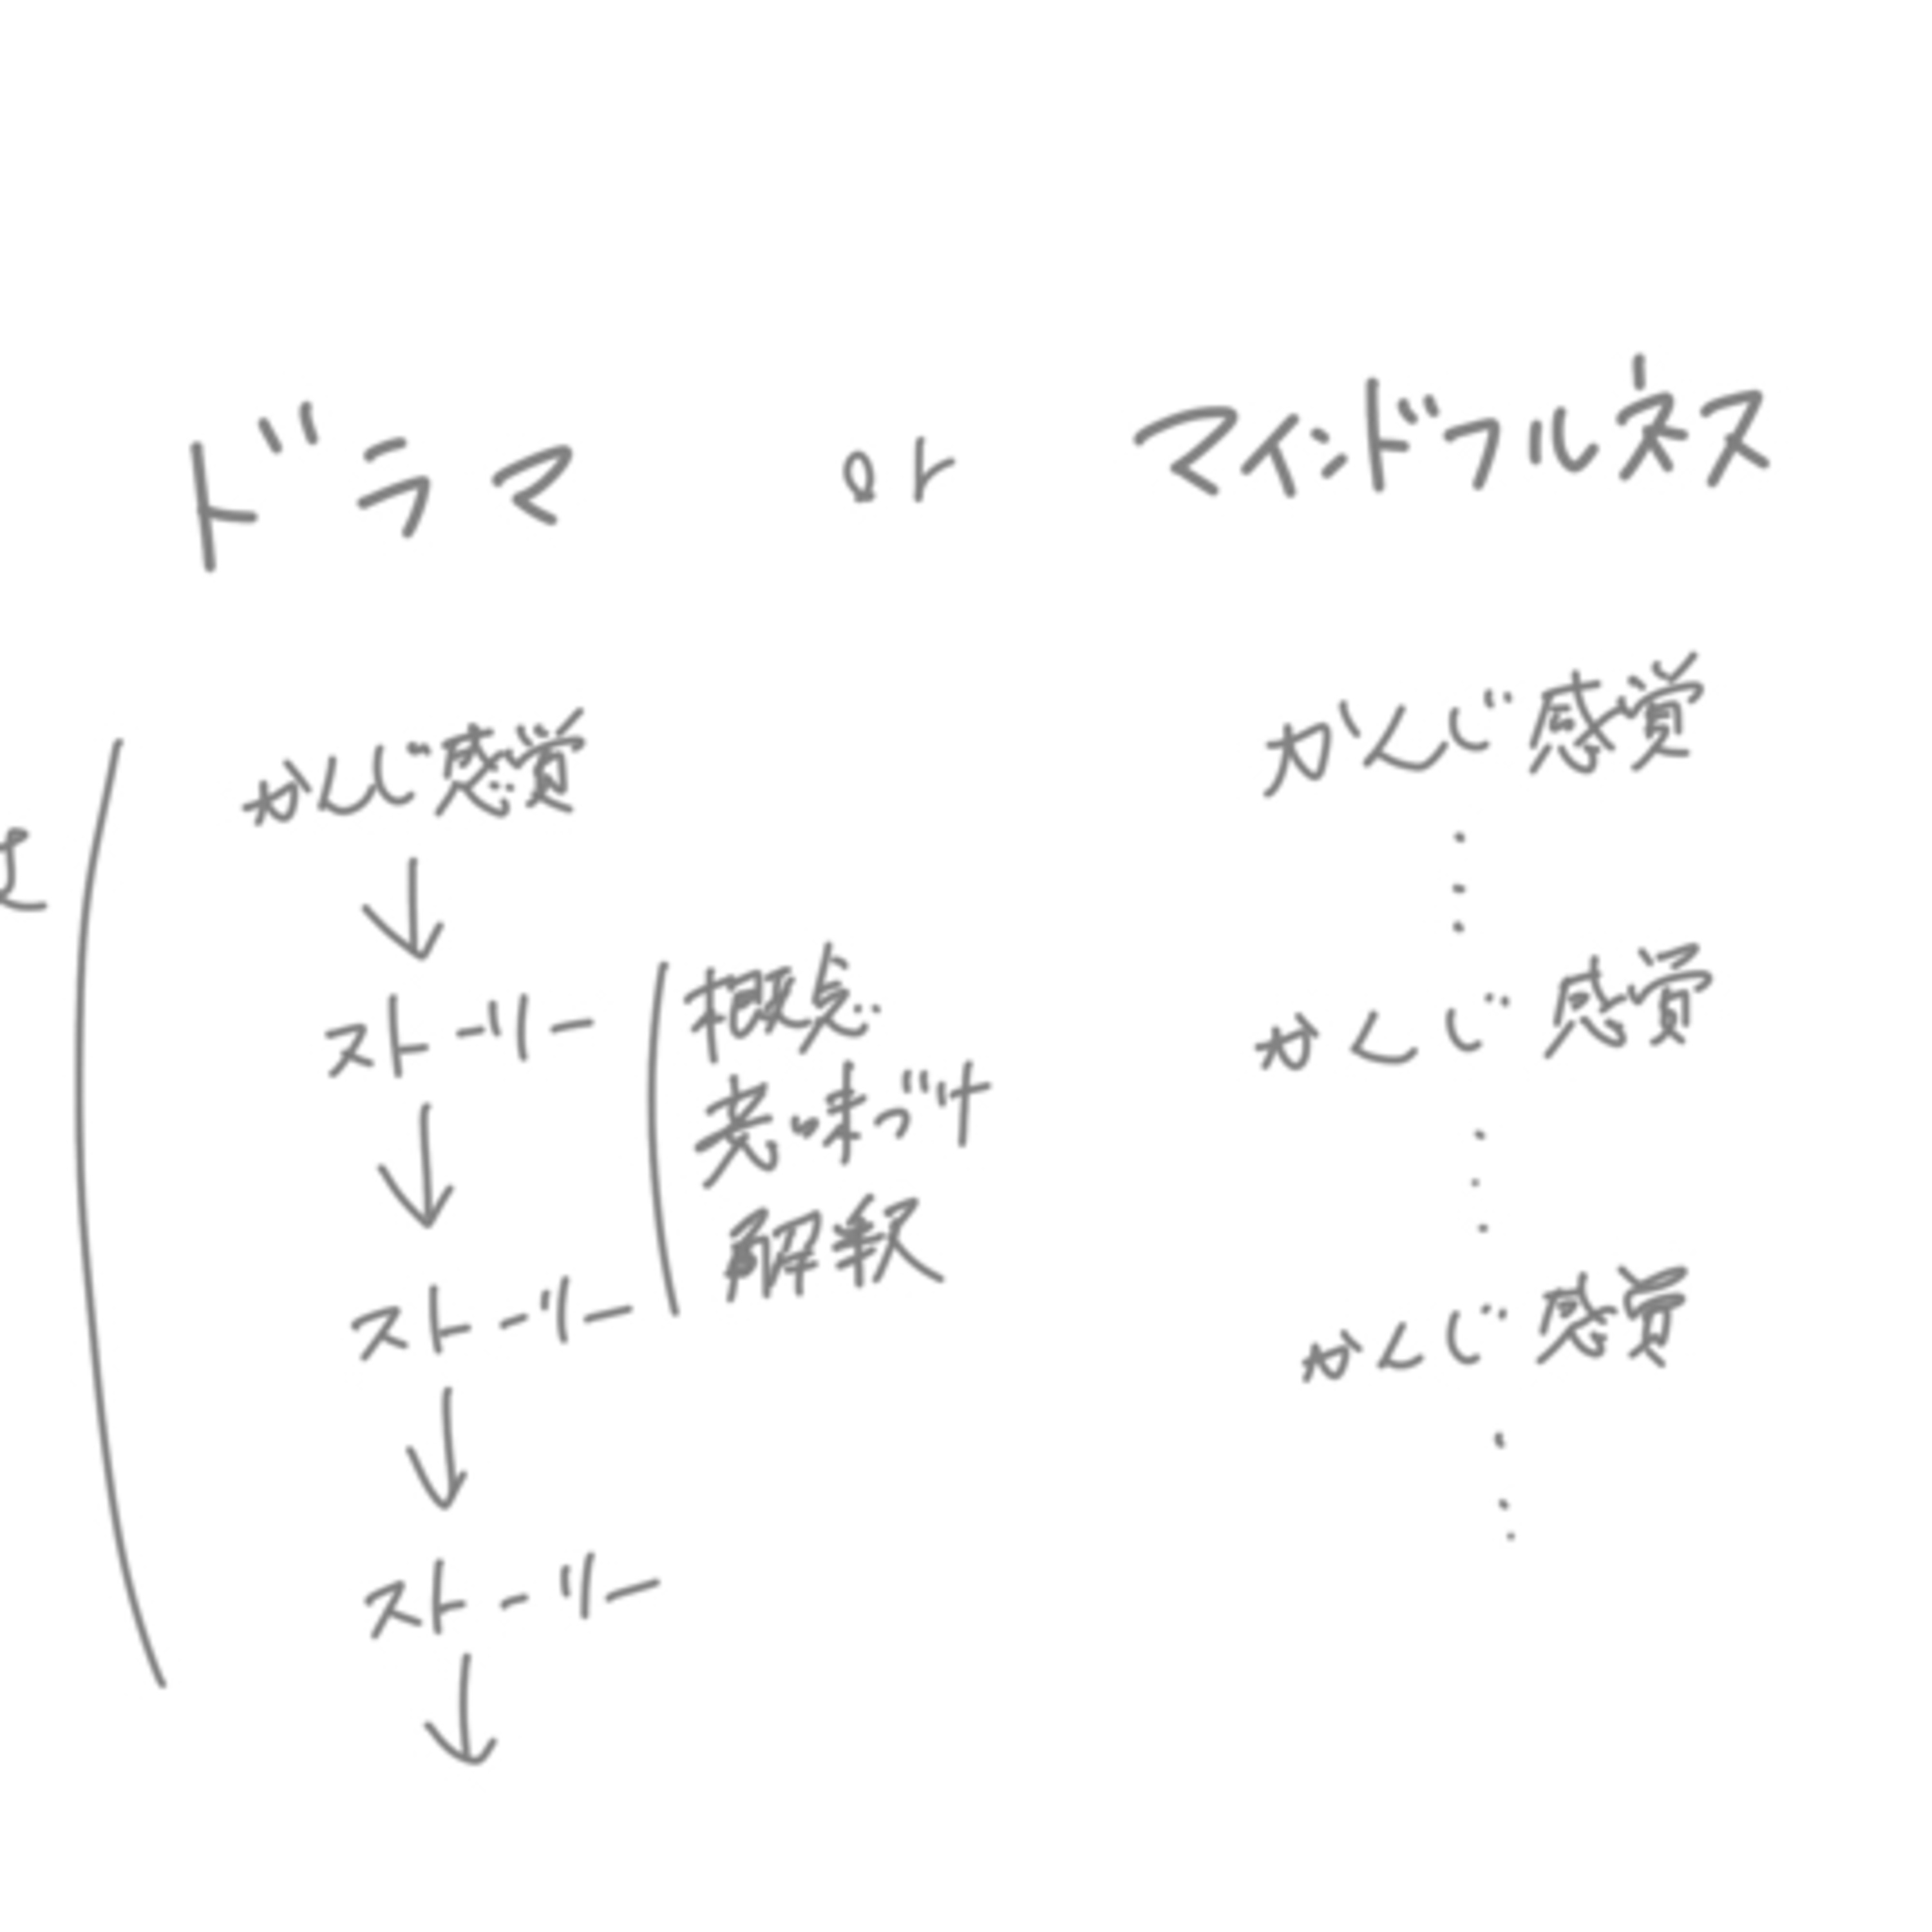 ドラマ or マインドフルネス
かんじ感覚
ストーリー
概念
意味づけ
解釈
ストーリー
ストーリー
かんじ感覚
かんじ感覚
かんじ感覚